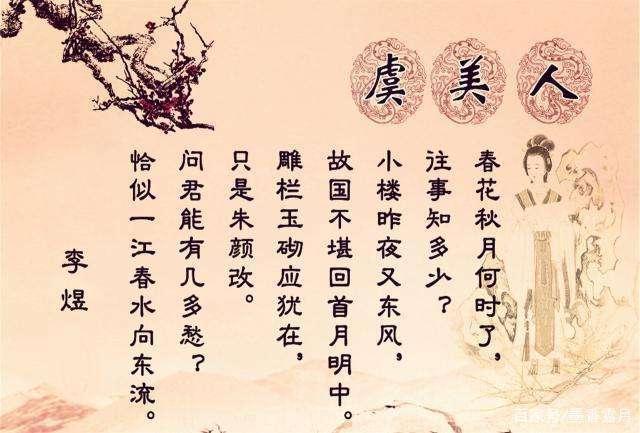 虞美人
春花秋月何时了，
往事知多少？
小楼昨夜又东风，
故国不堪回首月明中。
雕栏玉砌应犹在，
只是朱颜改。
问君能有几多愁？
恰似一江春水向东流。
李煜
百家号/墨香雪月